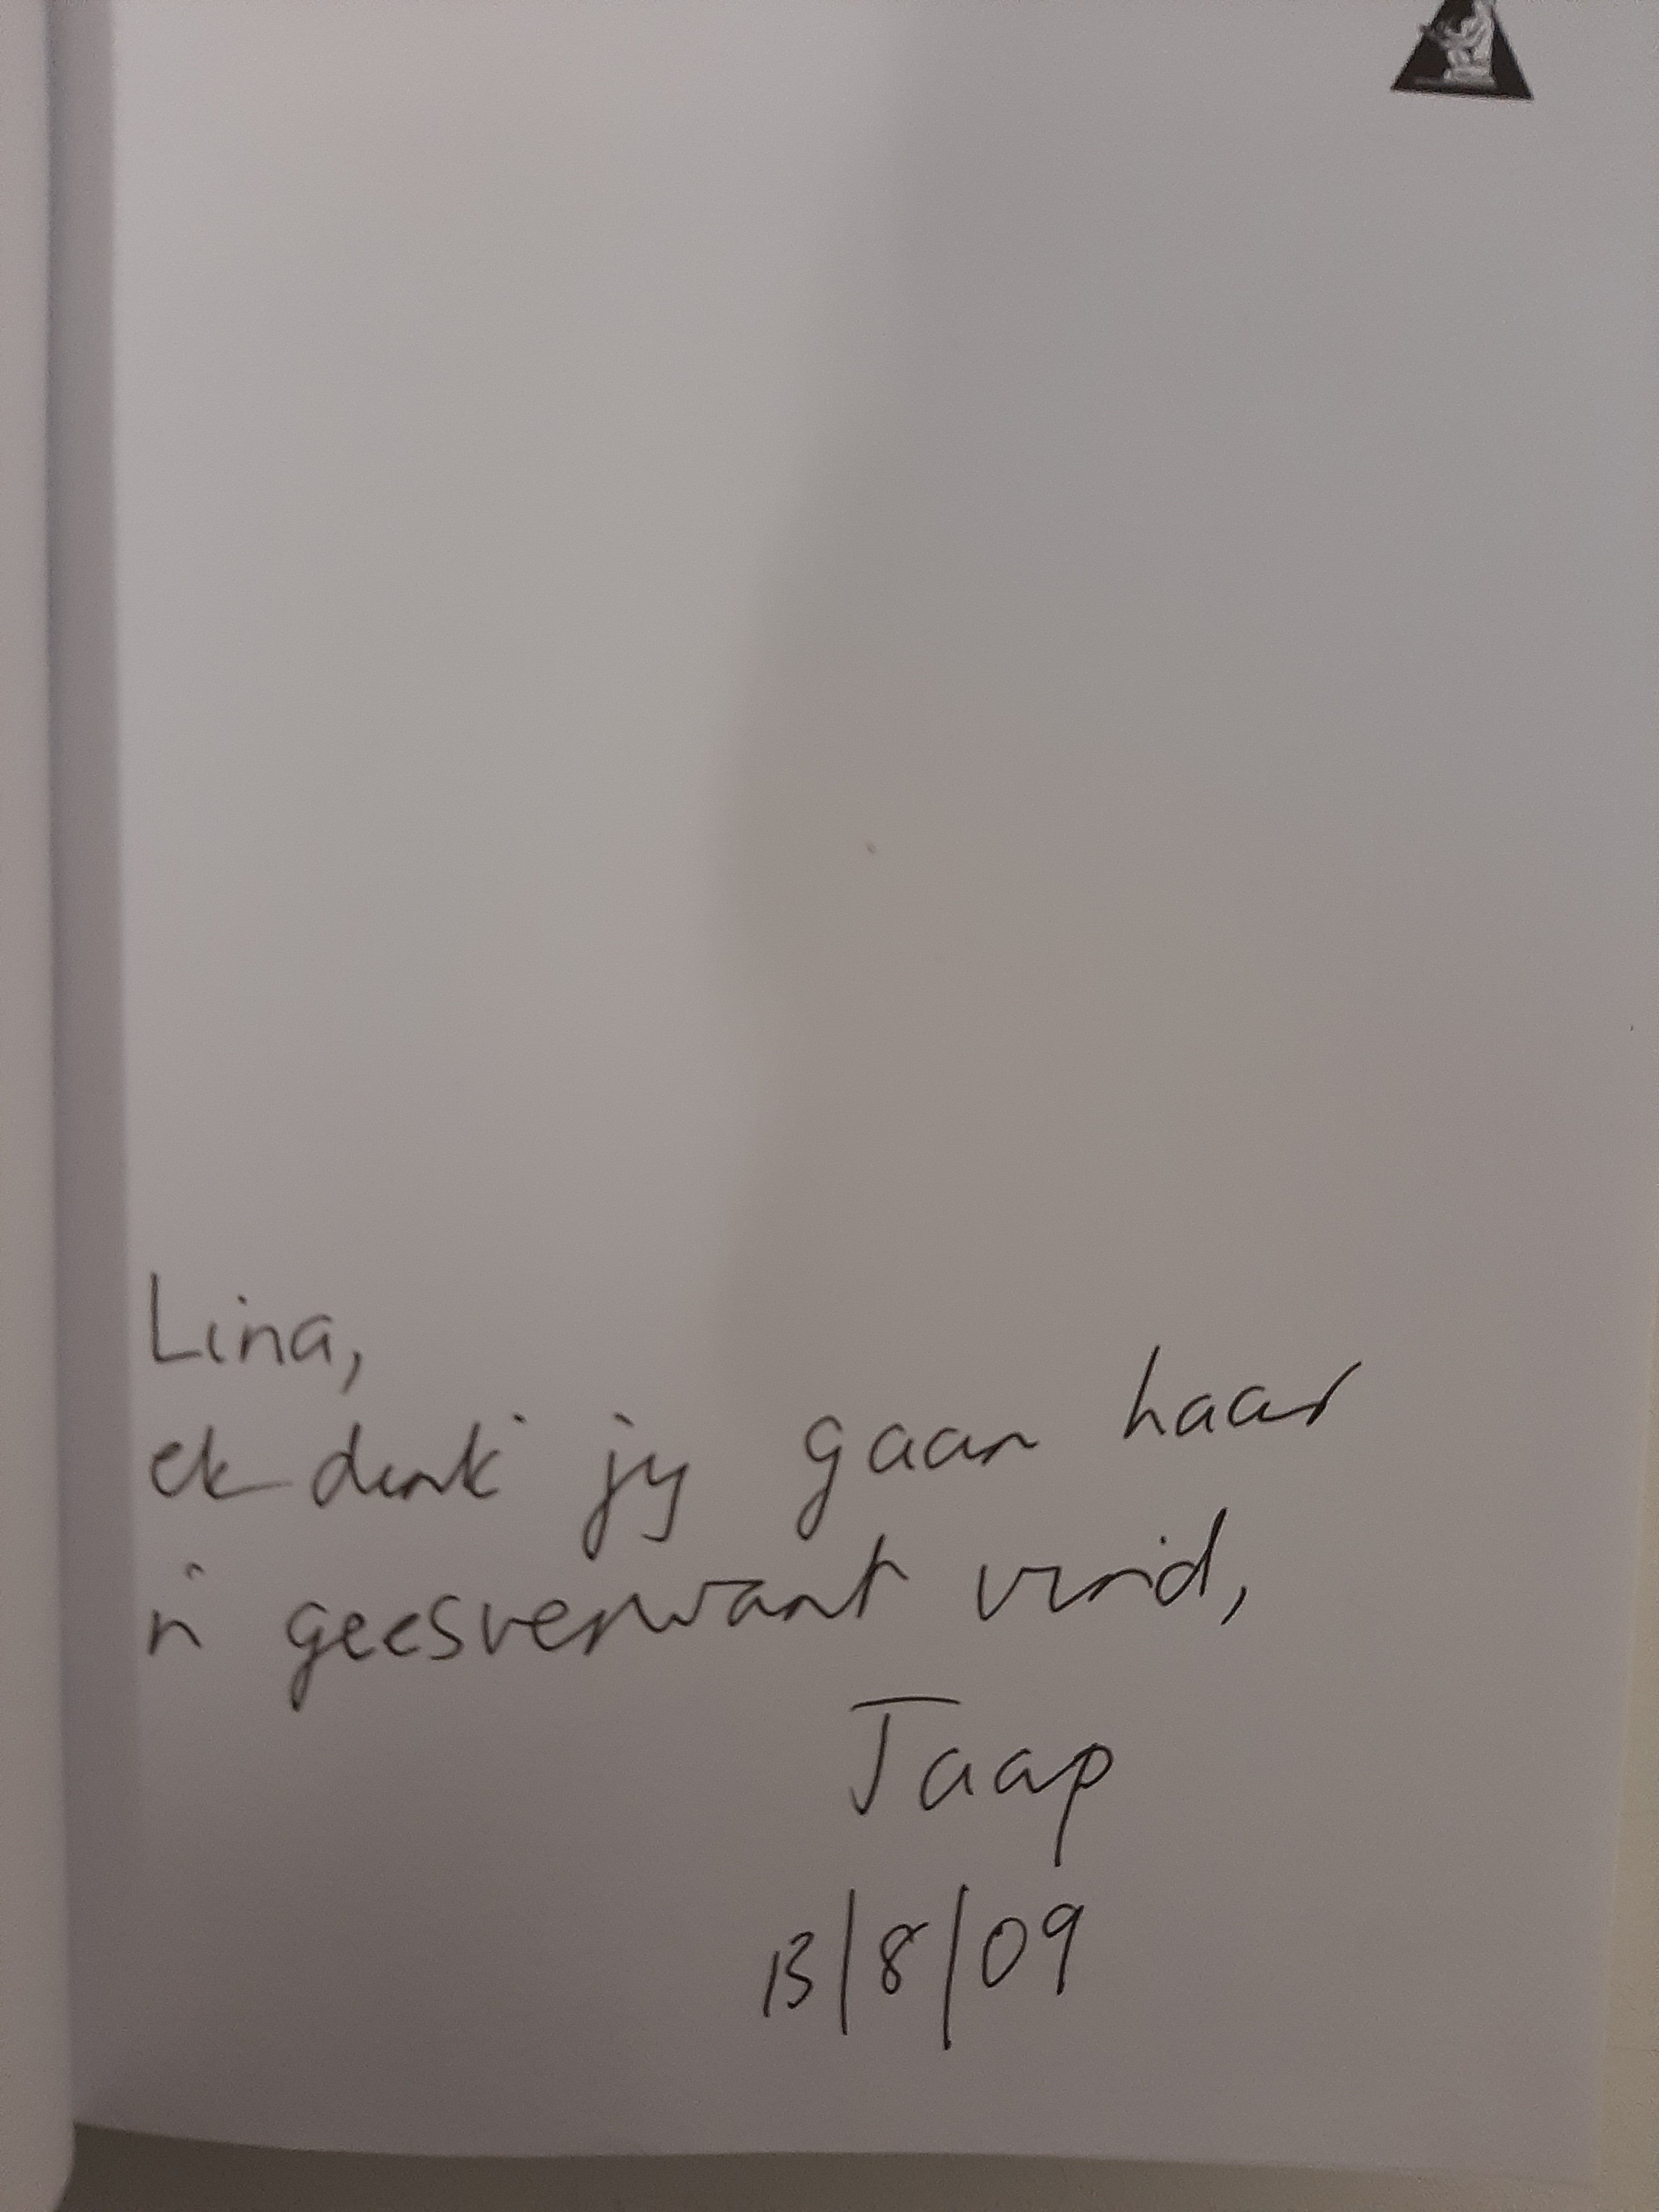 Lina,
ek dink jy gaan haar
'n geesverwant vind,
Jaap
13/8/09